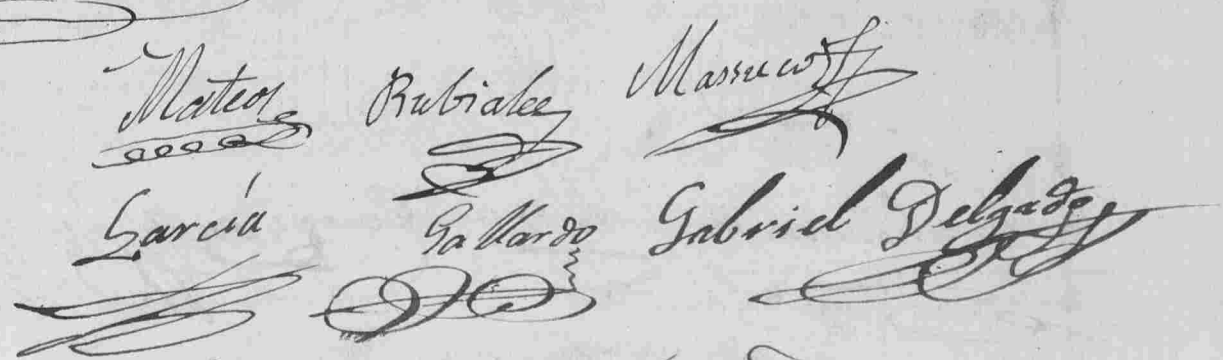 Mateos Rubiales Massucot
García Gallardo Gabriel Delgado